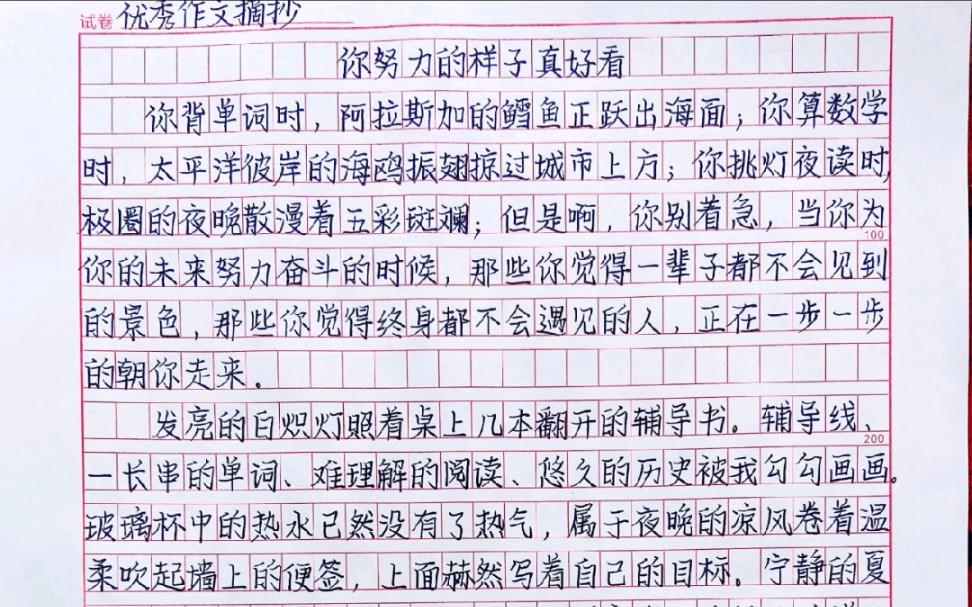 试卷 优秀作文摘抄
你努力的样子真好看
你背单词时，阿拉斯加的鳕鱼正跃出海面；你算数学
时，太平洋彼岸的海鸥振翅掠过城市上方；你挑灯夜读时，
极圈的夜晚散漫着五彩斑斓；但是啊，你别着急，当你为
100
你的未来努力奋斗的时候，那些你觉得一辈子都不会见到
的景色，那些你觉得终身都不会遇见的人，正在一步一步
的朝你走来。
发亮的白炽灯照着桌上几本翻开的辅导书。辅导线、
200
一长串的单词、难理解的阅读、悠久的历史被我勾勾画画。
玻璃杯中的热水已然没有了热气，属于夜晚的凉风卷着温
柔吹起墙上的便签，上面赫然写着自己的目标。宁静的夏